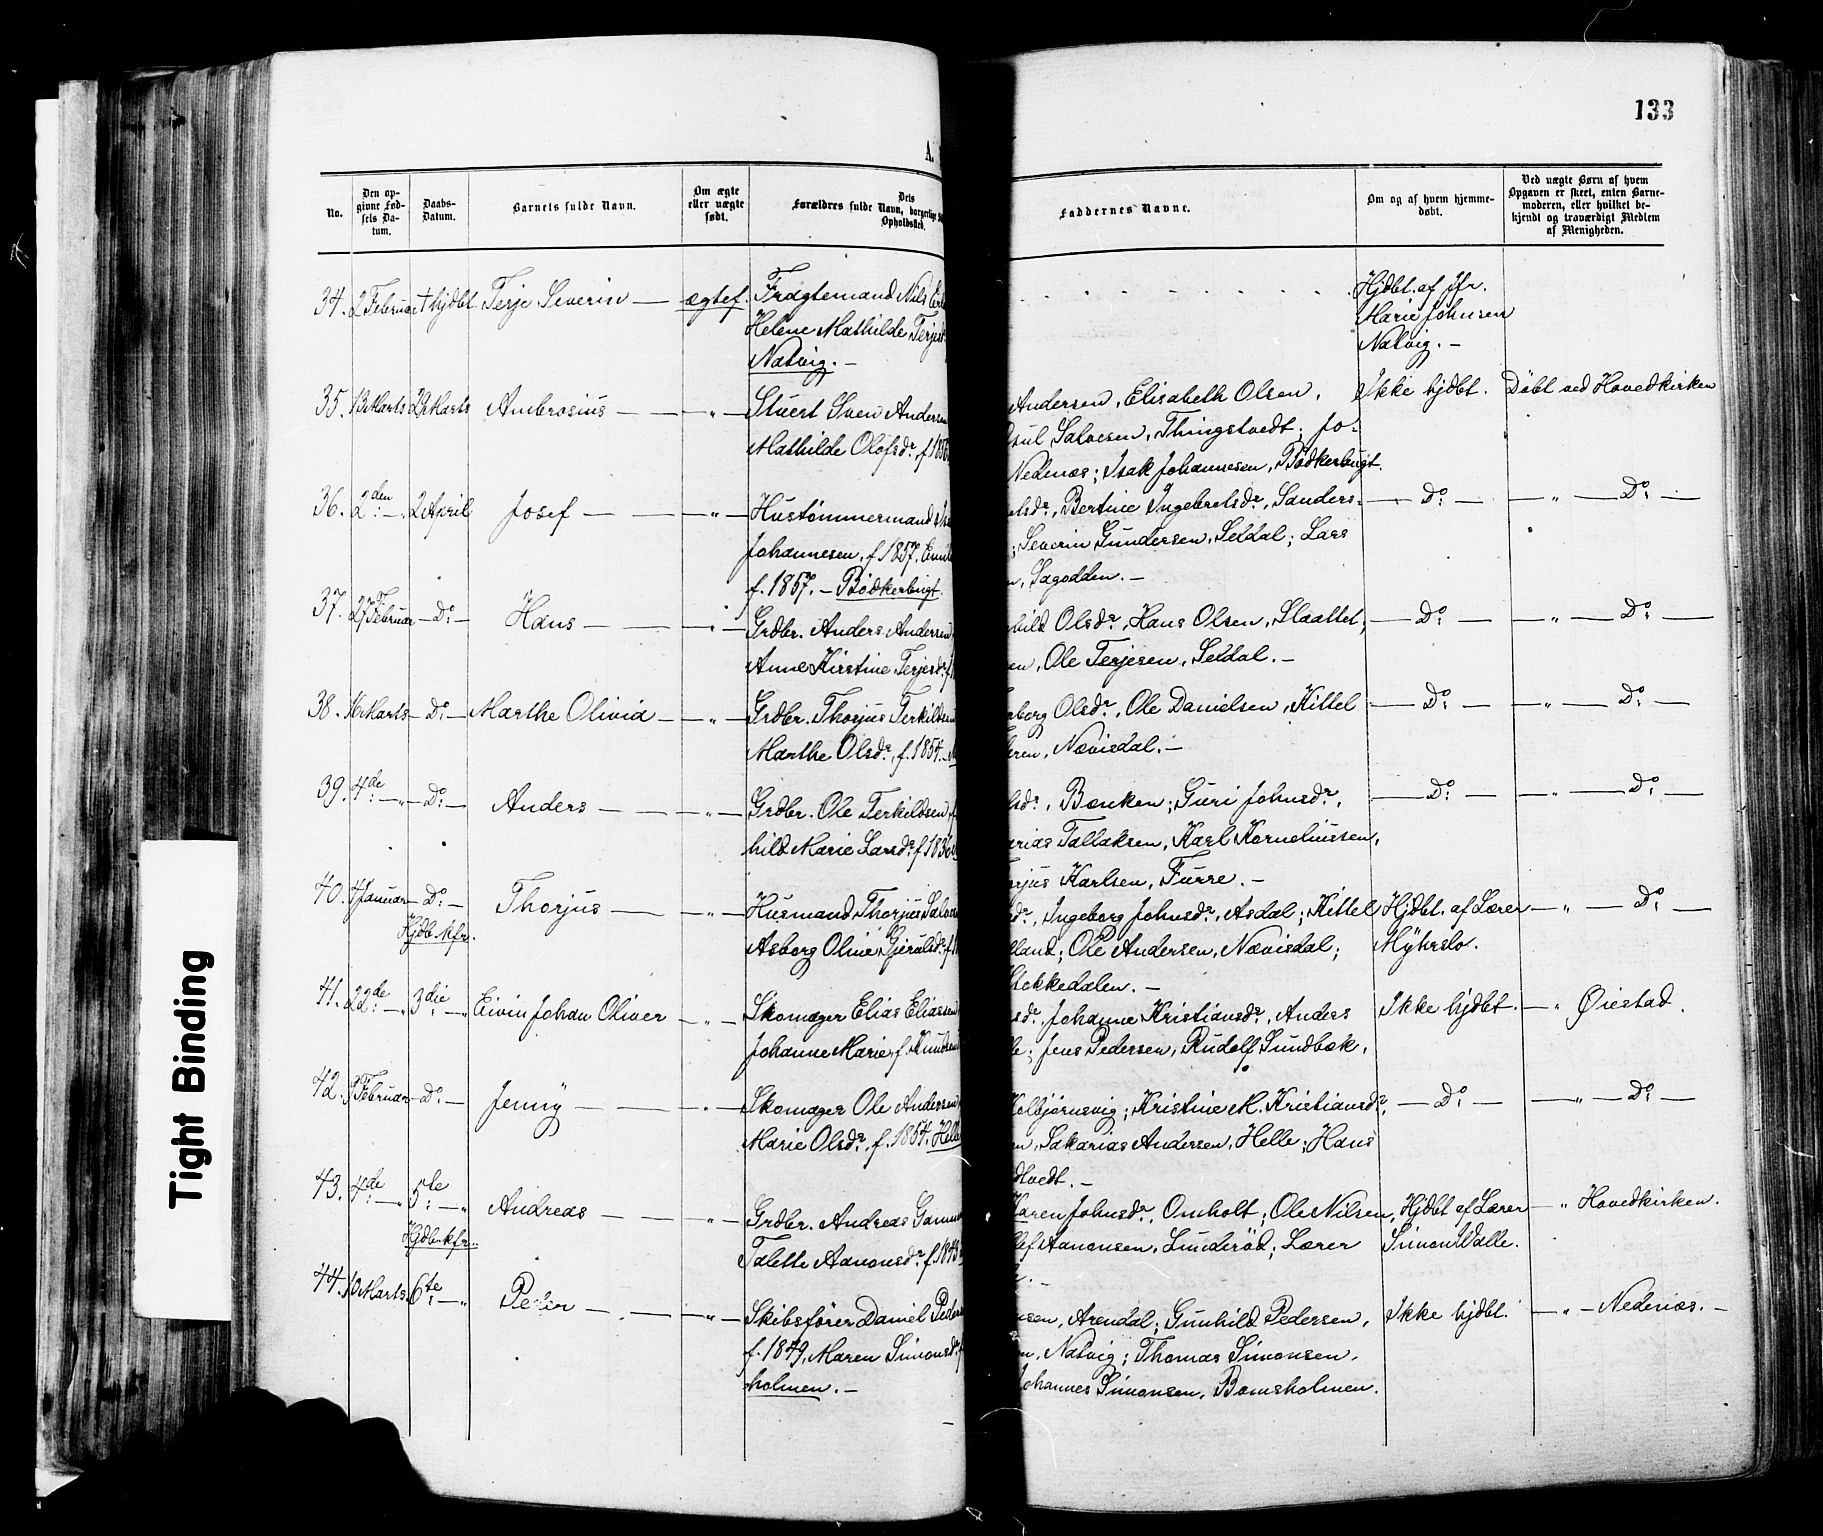 133
A.
No.
Den op-
givne Fød-
sels Da-
tum.
Daabs-
Datum.
Barnets fulde Navn.
Om ægte
eller uægte
født.
Dets
Forældres fulde Navn, borgerlige
Opholdssted.
Faddernes Navne.
Om og af hvem hjemme-
døbt.
Ved uægte Børn af hvem
Opgaven er skeet, enten Barne-
moderen, eller hvilket be-
kjendt og troværdigt Medlem
af Menigheden.
34. 2 Februar † hjdbt. Terje Severin — ægtef. Fragtemand Nils
Helene Mathilde Terjes
Natvig. —
Hjdbt. af Jfr.
Marie Johnsen
Natvig. —
35. 13 Marts 29 Marts Ambrosius — „ — Stuert Sven Andersen
Mathilde Olofsdr., f. 1856
Andersen, Elisabeth Olsen,
Salvesen, Thingstvedt; Jo-
Nedenæs; Isak Johannesen, Bødkerbugt.
Ikke hjdbt. Døbt ved Hovedkirken
36. 2den — „ 2 April Josef — „ — Hustømmermand
Johannesen, f. 1857,
f. 1857. — Bødkerbugt.
Bertine Ingebretsdr., Sanders-
; Severin Gundersen, Seldal; Lars
Sagodden. —
— Do: — „ — Do: —
37. 27 Februar — Do: — Hans — „ — Grdbr. Anders Andersen
Anne Kirstine Terjesdr. f.
Olsdr., Hans Olsen, Slaattet,
Ole Terjesen, Seldal. —
— Do: — „ — Do: —
38. 16 Marts — Do: — Marthe Olivia — „ — Grdbr. Thorjus Terkildsen
Marthe Olsdr., f. 1854. —
Olsdr., Ole Danielsen, Kittel
Nævisdal. —
— Do: — „ — Do: —
39. 4de — „ — Do: — Anders — „ — Grdbr. Ole Terkildsen, f.
hild Marie Larsdr. f. 1836
Bænken; Guri Johnsdr.,
Tallaksen, Karl Korneliussen,
Karlsen, Furre. —
— Do: — „ — Do: —
40. 4 Januar — Do: — Thorjus — „ — Husmand Thorjus
Hjdb. kfr.
Asborg Oline Gjeruldsdr. f.
Ingeborg Johnsdr., Asdal; Kittel
Ole Andersen, Nævisdal;
Stokkedalen. —
Hjdbt. af Lærer
Myhrslo.
— „ — Do: —
41. 22de — „ 3die — „ Eivin Johan Oliver — „ — Skomager Elias Eliassen
Johanne Marie, f. Knudsen
Johanne Kristiansdr., Anders
Jens Pedersen, Rudolf Sundbæk,
Ikke hjdbt. — „ Øiestad.
42. 9 Februar — Do: — Jenny — „ — Skomager Ole Andersen,
Marie Olsdr., f. 1854. Helle
Kolbjørnsvig; Kristine M. Kristiansdr.,
Sakarias Andersen, Helle; Hans
— Do: — „ — Do: —
43. 4de — „ 5te — „ Andreas — „ — Grdbr. Andreas
Hjdb. kfr.
Talette Aanonsdr. f. 1843
Karen Johnsdr., Omholt; Ole Nilsen,
Aanonsen, Lunderød; Lærer
Hjdbt af Lærer
Simon Valle.
— „ Hovedkirken.
44. 10 Marts. 6te — „ Peder — „ — Skibsfører Daniel
f. 1849, Maren Simonsdr. f.
holmen. —
Arendal; Gunhild Pedersen,
Natvig; Thomas Simonsen,
Johannes Simonsen, Bomsholmen.
Ikke hjdbt. — „ — Nedenæs. —
Tight Binding